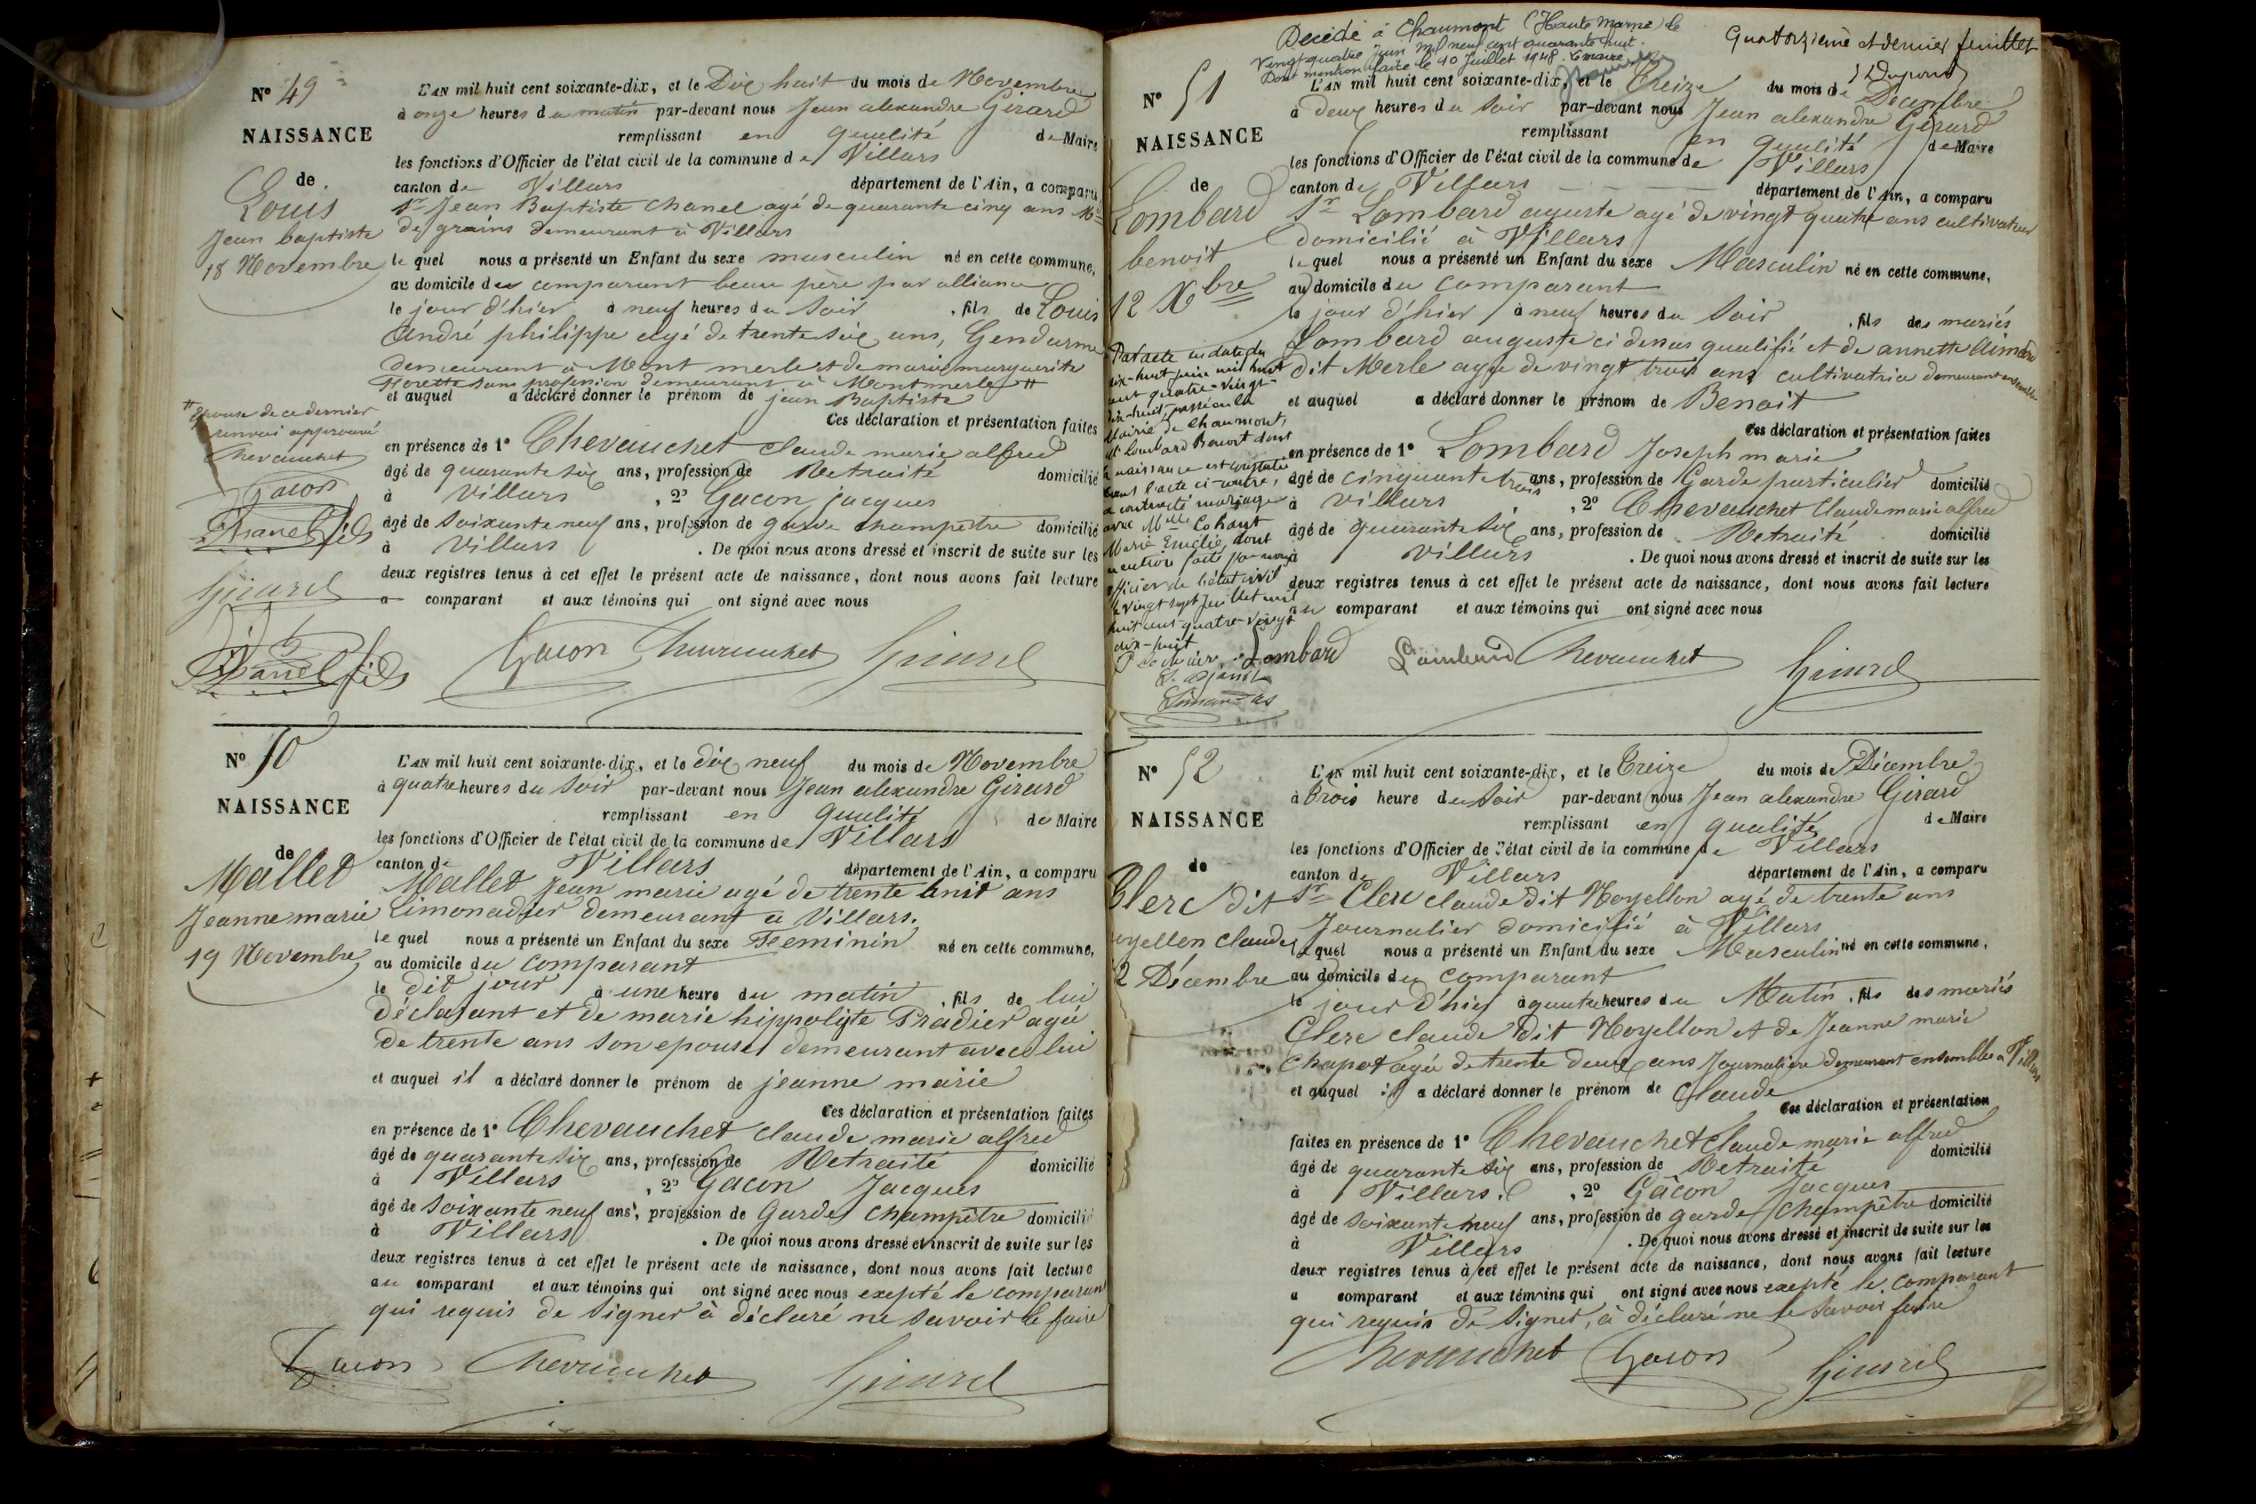 N° 49
NAISSANCE
de
Louis
Jean baptiste
18 Novembre
L'AN mil huit cent soixante-dix, et le Dix huit du mois de Novembre
à onze heures du matin par-devant nous Jean alexandre Girard
remplissant en qualité de Maire
les fonctions d'Officier de l'état civil de la commune de Villars
canton de Villars département de l'Ain, a comparu
Sr Jean Baptiste Chanel agé de quarante cinq ans Md
de grains demeurant à Villars
le quel nous a présenté un Enfant du sexe masculin né en cette commune,
au domicile du comparant beau père par alliance
le jour d'hier à neuf heures du soir, fils de Louis
André philippe agé de trente six ans, Gendarme
demeurant à Mont merle et de marie marguerite
Florette sans profession demeurant à Montmerle #
et auquel a déclaré donner le prénom de jean Baptiste
Ces déclaration et présentation faites
# épouse de ce dernier
renvoi approuvé
Chevauchet
Gacon
Chanel fils
Girard
en présence de 1° Chevauchet claude marie alfred
âgé de quarante six ans, profession de Retraité domicilié
à Villars, 2° Gacon jacques
âgé de soixante neuf ans, profession de garde champêtre domicilié
à Villars. De quoi nous avons dressé et inscrit de suite sur les
deux registres tenus à cet effet le présent acte de naissance, dont nous avons fait lecture
a comparant et aux témoins qui ont signé avec nous
Chanel fils Gacon Chevauchet Girard
N° 50
NAISSANCE
de
Mallet
Jeanne marie
19 Novembre
L'AN mil huit cent soixante-dix, et le dix neuf du mois de Novembre
à quatre heures du soir par-devant nous Jean alexandre Girard
remplissant en qualité de Maire
les fonctions d'Officier de l'état civil de la commune de Villars
canton de Villars département de l'Ain, a comparu
Mallet Jean marie agé de trente huit ans
Limonadier demeurant à Villars.
le quel nous a présenté un Enfant du sexe Feminin né en cette commune,
au domicile du comparant
le dit jour à une heure du matin, fils de lui
déclarant et de marie hippolyte Pradier agée
de trente ans son epouse demeurant avec lui
et auquel il a déclaré donner le prénom de jeanne marie
Ces déclaration et présentation faites
en présence de 1° Chevauchet claude marie alfred
âgé de quarante six ans, profession de Retraité domicilié
à Villars, 2° Gacon Jacques
âgé de soixante neuf ans, profession de Garde champêtre domicilié
à Villars. De quoi nous avons dressé et inscrit de suite sur les
deux registres tenus à cet effet le présent acte de naissance, dont nous avons fait lecture
au comparant et aux témoins qui ont signé avec nous exepté le comparant
qui requis de signer à déclaré ne savoir le faire
Gacon Chevauchet Girard
Décédé à Chaumont (Haute Marne) le
vingt quatre juin mil neuf cent quarante huit.
Dont mention faite le 10 Juillet 1948.
Quatorzième et dernier feuillet
N° 51
NAISSANCE
de
Lombard
benoit
12 Xbre
Par acte en date du
dix-huit juin mil huit
cent quatre-vingt-
dix-huit, passé en la
Mairie de Chaumont,
Lombard Benoit dont
la naissance est constatée
dans l'acte ci-contre,
a contracté mariage
avec Mlle Cohant
Marie Emélie, dont
mention faite par nous
officier de l'état civil
le vingt sept Juillet mil
huit cent quatre-vingt
dix-huit
L'AN mil huit cent soixante-dix, et le Treize du mois de Décembre
à deux heures du soir par-devant nous Jean alexandre Girard
remplissant en qualité de Maire
les fonctions d'Officier de l'état civil de la commune de Villars
canton de Villars département de l'Ain, a comparu
Sr Lombard auguste agé de vingt quatre ans cultivateur
domicilié à Villars
le quel nous a présenté un Enfant du sexe Masculin né en cette commune,
au domicile du comparant
le jour d'hier à neuf heures du soir, fils des mariés
Lombard auguste ci dessus qualifié et de annette
dit Merle agée de vingt trois ans cultivatrice demeurant ensemble
et auquel a déclaré donner le prénom de Benoit
Ces déclaration et présentation faites
en présence de 1° Lombard Joseph marie
âgé de cinquante trois ans, profession de Garde particulier domicilié
à Villars, 2° Chevauchet Claude marie alfred
âgé de quarante six ans, profession de Retraité domicilié
à Villars. De quoi nous avons dressé et inscrit de suite sur les
deux registres tenus à cet effet le présent acte de naissance, dont nous avons fait lecture
au comparant et aux témoins qui ont signé avec nous
Lombard Lombard Chevauchet Girard
N° 52
NAISSANCE
de
Clerc dit
Noyellon claude
12 Décembre
L'AN mil huit cent soixante-dix, et le Treize du mois de Décembre
à Trois heure du soir par-devant nous Jean alexandre Girard
remplissant en qualité de Maire
les fonctions d'Officier de l'état civil de la commune de Villars
canton de Villars département de l'Ain, a comparu
Sr Clerc claude dit Noyellon agé de trente ans
Journalier domicilié à Villars
lequel nous a présenté un Enfant du sexe Masculin né en cette commune,
au domicile du comparant
le jour d'hier à quatre heures du Matin, fils des mariés
Clerc claude dit Noyellon et de Jeanne marie
Chapot agée de trente deux ans Journalière demeurant ensemble à Villars
et auquel il a déclaré donner le prénom de Claude
Ces déclaration et présentation
faites en présence de 1° Chevauchet Claude marie alfred
âgé de quarante six ans, profession de Retraité domicilié
à Villars, 2° Gâcon Jacques
âgé de soixante neuf ans, profession de garde champêtre domicilié
à Villars. De quoi nous avons dressé et inscrit de suite sur les
deux registres tenus à cet effet le présent acte de naissance, dont nous avons fait lecture
a comparant et aux témoins qui ont signé avec nous exepté le comparant
qui requis de signer, à déclaré ne le savoir faire
Chevauchet Gacon Girard